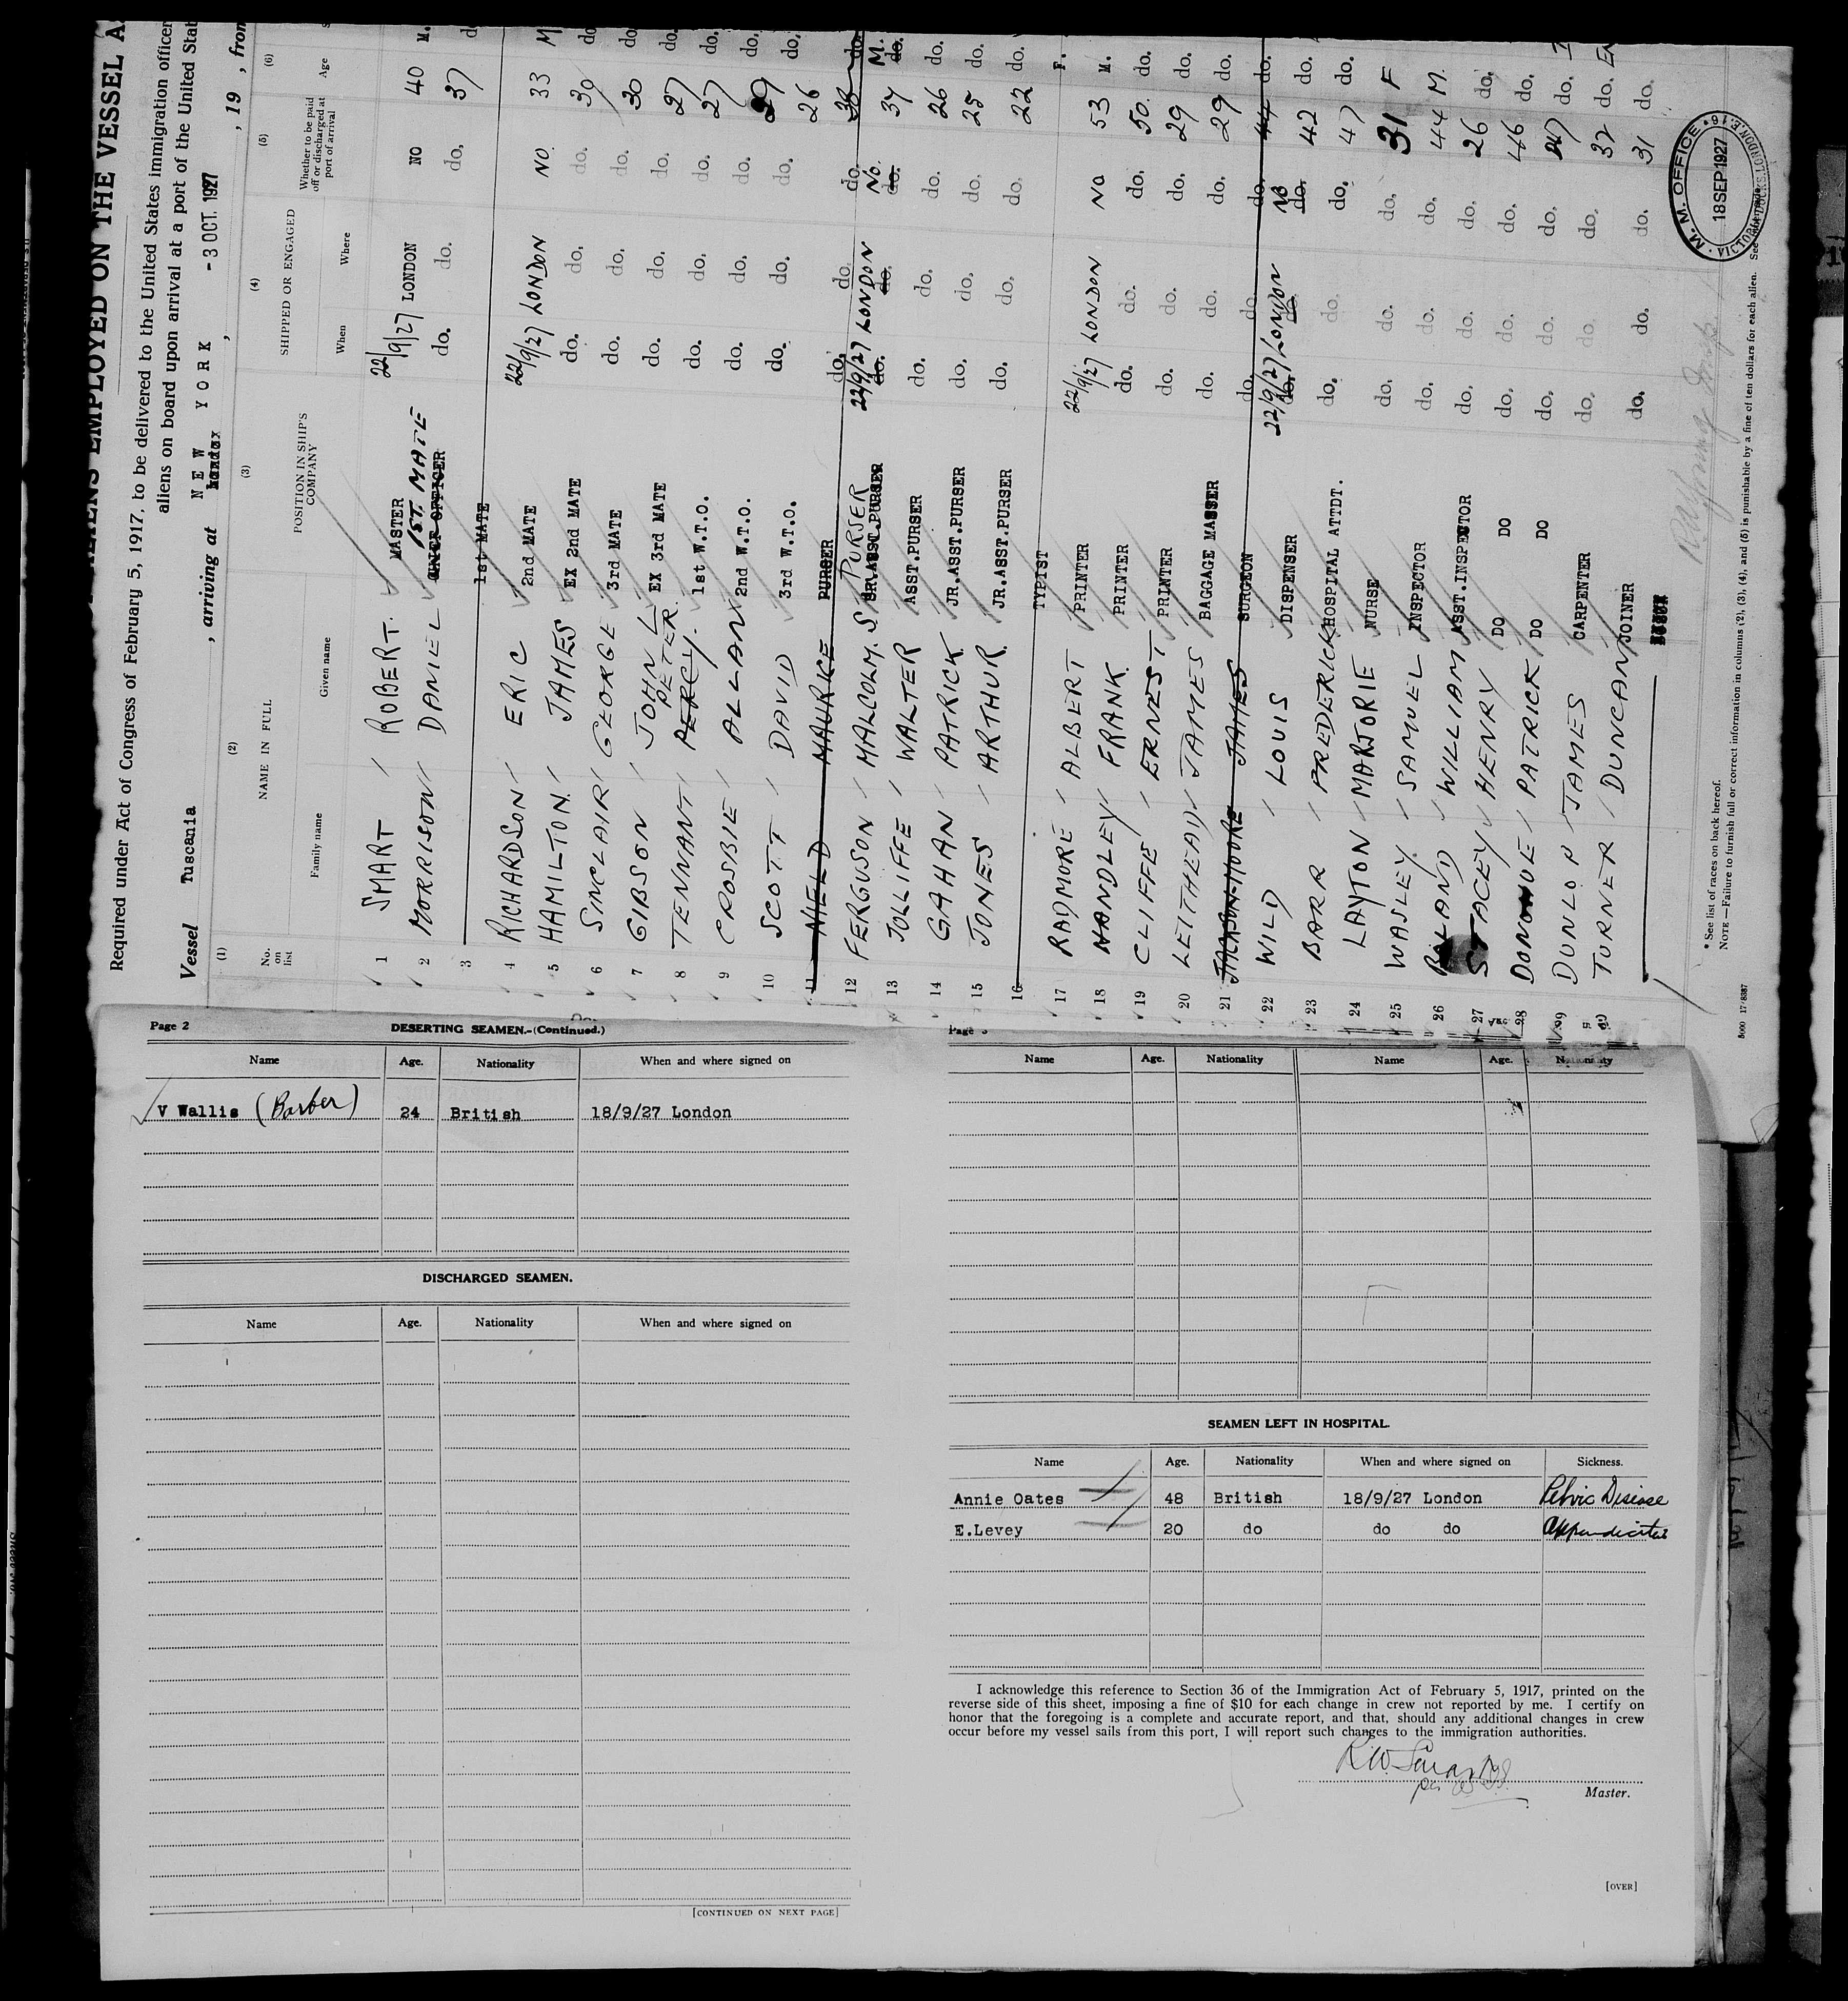 ALIENS EMPLOYED ON THE VESSEL A
Required under Act of Congress of February 5, 1917, to be delivered to the United States immigration officer
aliens on board upon arrival at a port of the United Stat
Vessel Tuscania , arriving at NEW YORK , - 3 OCT. 1927 , 19 , from
London
(1) (2) (3) (4) (5) (6)
No. on list NAME IN FULL POSITION IN SHIP'S COMPANY SHIPPED OR ENGAGED Whether to be paid off or discharged at port of arrival Age
Family name Given name When Where
1 SMART ROBERT. MASTER 22/9/27 LONDON NO 40 M.
2 MORRISON DANIEL CHIEF OFFICER 1ST. MATE do. do. do. 37 d
3 1st MATE
4 RICHARDSON ERIC 2nd MATE 22/9/27 LONDON NO. 33 M
5 HAMILTON. JAMES EX 2nd MATE do. do. do. 30 do
6 SINCLAIR GEORGE 3rd MATE do. do. do. 30 do.
7 GIBSON JOHN L EX 3rd MATE do. do. do. 27 do.
8 TENNANT PERCY. PETER. 1st W.T.O. do. do. do. 27 do.
9 CROSBIE ALLAN 2nd W.T.O. do. do. do. 29 do.
10 SCOTT DAVID 3rd W.T.O. do. do. do. 26 do.
11 NIELD MAURICE PURSER do. do. do. 38 do.
12 FERGUSON MALCOLM. S. SR.ASST.PURSER PURSER 22/9/27 do. LONDON do. No. do. 37 M. do.
13 JOLLIFFE WALTER ASST.PURSER do. do. do. 26 do.
14 GAHAN PATRICK JR.ASST.PURSER do. do. do. 25 do.
15 JONES ARTHUR JR.ASST.PURSER do. do. do. 22 do.
16 TYPIST F.
17 RADMORE ALBERT PRINTER 22/9/27 LONDON NO 53 M.
18 HANDLEY FRANK. PRINTER do. do. do. 50. do.
19 CLIFFE ERNEST PRINTER do. do. do. 29 do.
20 LEITHEAD JAMES BAGGAGE MASTER do. do. do. 29 do.
21 JACKSON-MOORE JAMES SURGEON do. do. do. 44 do.
22 WILD LOUIS DISPENSER 22/9/27 do. LONDON do. NO do. 42 do.
23 BARR FREDERICK HOSPITAL ATTDT. do. do. do. 47 do.
24 LAYTON MARJORIE NURSE do. do. do. 31 F
25 WASLEY. SAMUEL INSPECTOR do. do. do. 44 M.
26 BOLAND WILLIAM ASST.INSPECTOR do. do. do. 26 do.
27 STACEY HENRY DO DO do. do. do. 46 do.
28 DONOHUE PATRICK DO DO do. do. do. 47 do.
29 DUNLOP JAMES CARPENTER do. do. do. 32 do. EN
30 TURNER DUNCAN JOINER do. do. do. 31 do.
M. M. OFFICE 18 SEP 1927 VICTORIA DOCKS, LONDON E. 16
* See list of races on back hereof.
NOTE—Failure to furnish full or correct information in columns (2), (3), (4), and (5) is punishable by a fine of ten dollars for each alien. See
5000 17/8387
Page 2 DESERTING SEAMEN.-(Continued.)
Name Age. Nationality When and where signed on
V Wallis (Barber) 24 British 18/9/27 London
DISCHARGED SEAMEN.
Name Age. Nationality When and where signed on
[CONTINUED ON NEXT PAGE]
Page 3
Name Age. Nationality Name Age. Nationality
SEAMEN LEFT IN HOSPITAL.
Name Age. Nationality When and where signed on Sickness.
Annie Oates 48 British 18/9/27 London Pelvic Disease
E.Levey 20 do do do Appendicitus
I acknowledge this reference to Section 36 of the Immigration Act of February 5, 1917, printed on the
reverse side of this sheet, imposing a fine of $10 for each change in crew not reported by me. I certify on
honor that the foregoing is a complete and accurate report, and that, should any additional changes in crew
occur before my vessel sails from this port, I will report such changes to the immigration authorities.
R.W. Smart
Master.
[OVER]